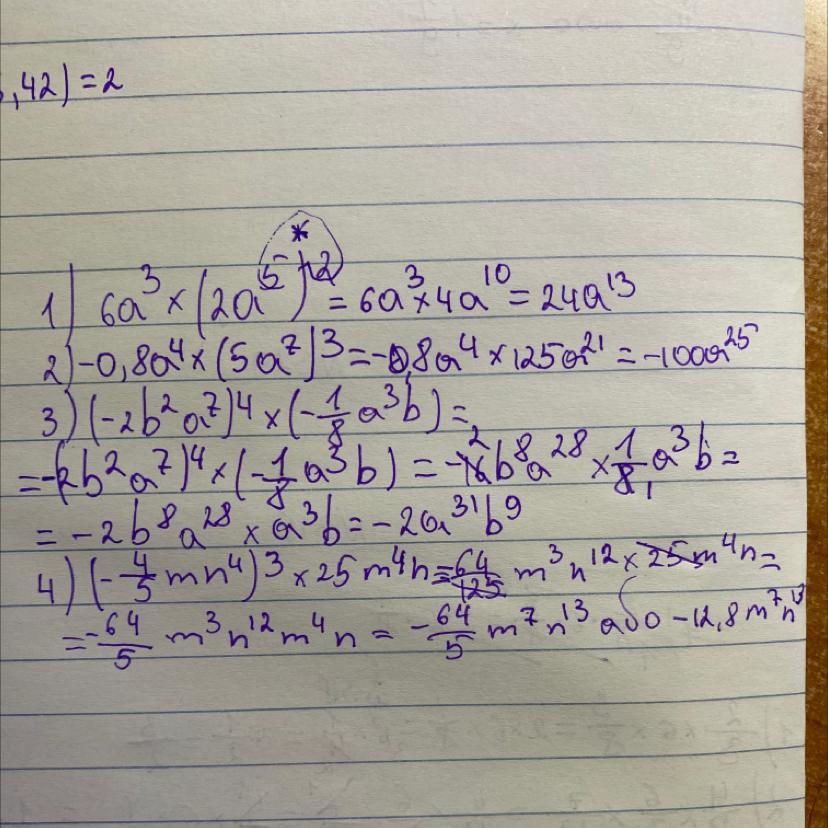 ,42) = 2
*
1) 6a³ × (2a⁵)² = 6a³ × 4a¹⁰ = 24a¹³
2) -0,8a⁴ × (5a⁷)³ = -0,8a⁴ × 125a²¹ = -100a²⁵
3) (-2b²a⁷)⁴ × (-1/8 a³b) =
= -(2b²a⁷)⁴ × (-1/8 a³b) = -16 2 b⁸a²⁸ × 1/8 1 a³b =
= -2b⁸a²⁸ × a³b = -2a³¹b⁹
4) (-4/5 mn⁴)³ × 25m⁴n = -64/125 m³n¹² × 25m⁴n =
= -64/5 m³n¹²m⁴n = -64/5 m⁷n¹³ або -12,8m⁷n¹³